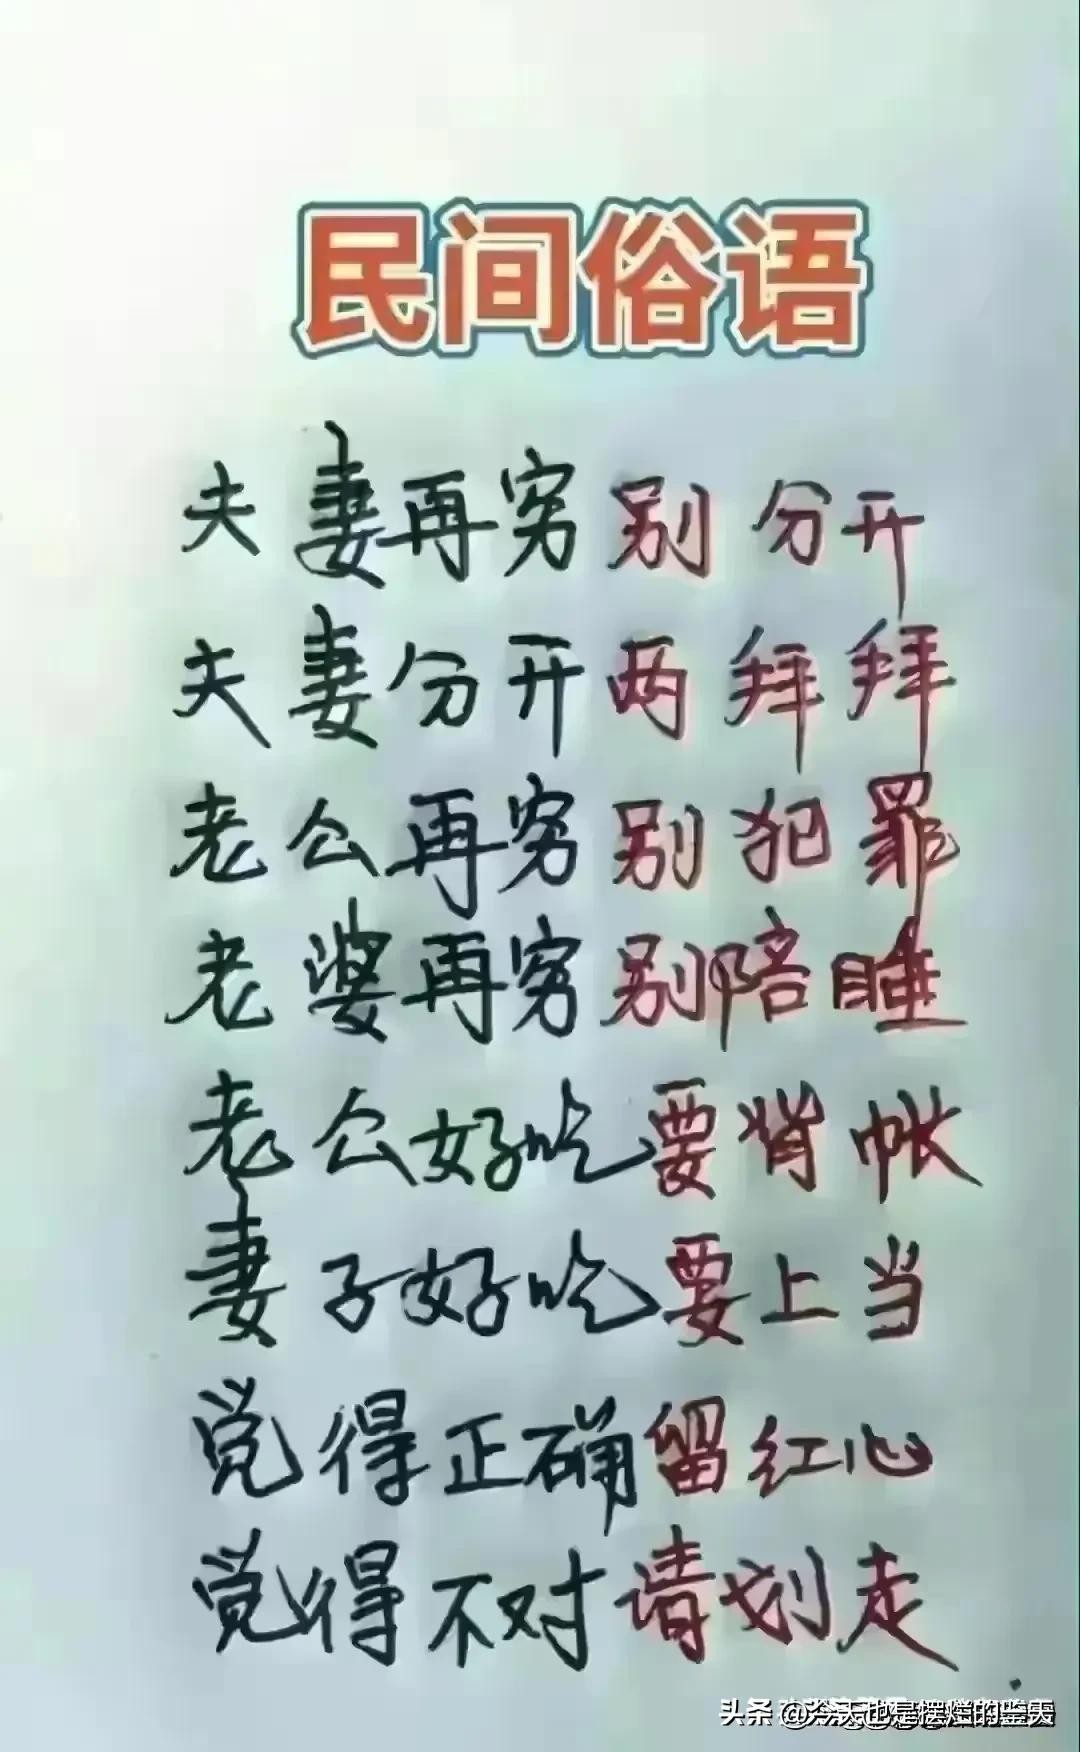 民间俗语
夫妻再穷别分开
夫妻分开两拜拜
老公再穷别犯罪
老婆再穷别陪睡
老公好吃要背帐
妻子好吃要上当
觉得正确留红心
觉得不对请划走
头条 @今天也是摆烂的一天